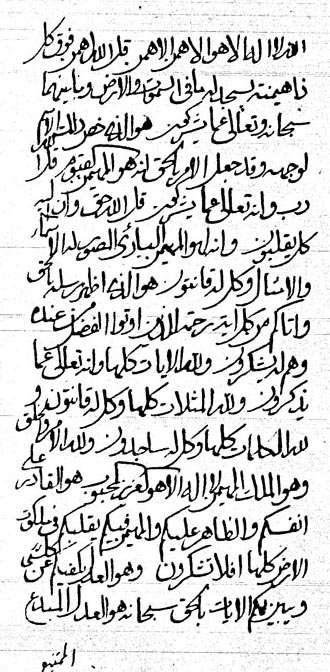 الله لا اله الا هو الاهمن الاهمن قل الله اهمن فوق كل
ذا هيمنة يسبح له ما في السموات والارض وما بينهما
سبحانه وتعالى عما يشركون هو الذي خضر ذلك الام
لوجهه وقد جعل الامر بالحق انه هو المهيمن القيوم قل الله
رب وانه تعالى عما يشركون قل الله حق وان اليه
كل ينقلبون وانه لهو المهيمن الباري المصور له الاسماء
والامثال وكل له قانتون هو الذي اظهر رسله بالحق
واتاكم من كل اية رحمة الذين اوتوا الفضل من عنده
وهم له يشكرون ولله الايات كلها وانه تعالى عما
يذكرون ولله المثلات كلها وكل له قانتون و
لله الكلمات كلها وكل له ساجدون ولله الامر والخلق
وهو الملك المهيمن لا اله الا هو العزيز المحبوب هو القادر على
انفسكم والظاهر عليكم والمهيمن فيكم يقلبكم في ملكوت
الارض كلها افلا تشكرون وهو العدل ليغنيكم عن كل شيء
ويبين لكم الايات بالحق سبحانه هو العدل المبدع
الممتنع